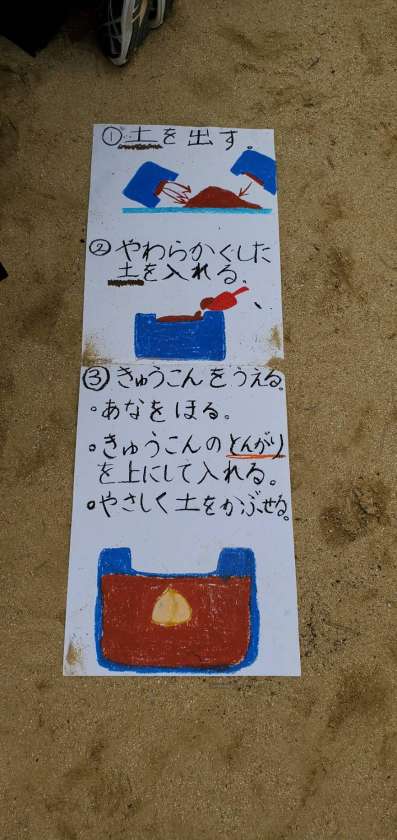 ①土を出す。
②やわらかくした
土を入れる。
③きゅうこんをうえる。
・あなをほる。
・きゅうこんのとんがり
を上にして入れる。
・やさしく土をかぶせる。